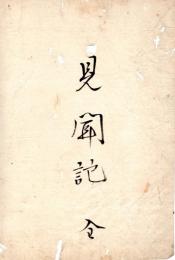 見聞記 全